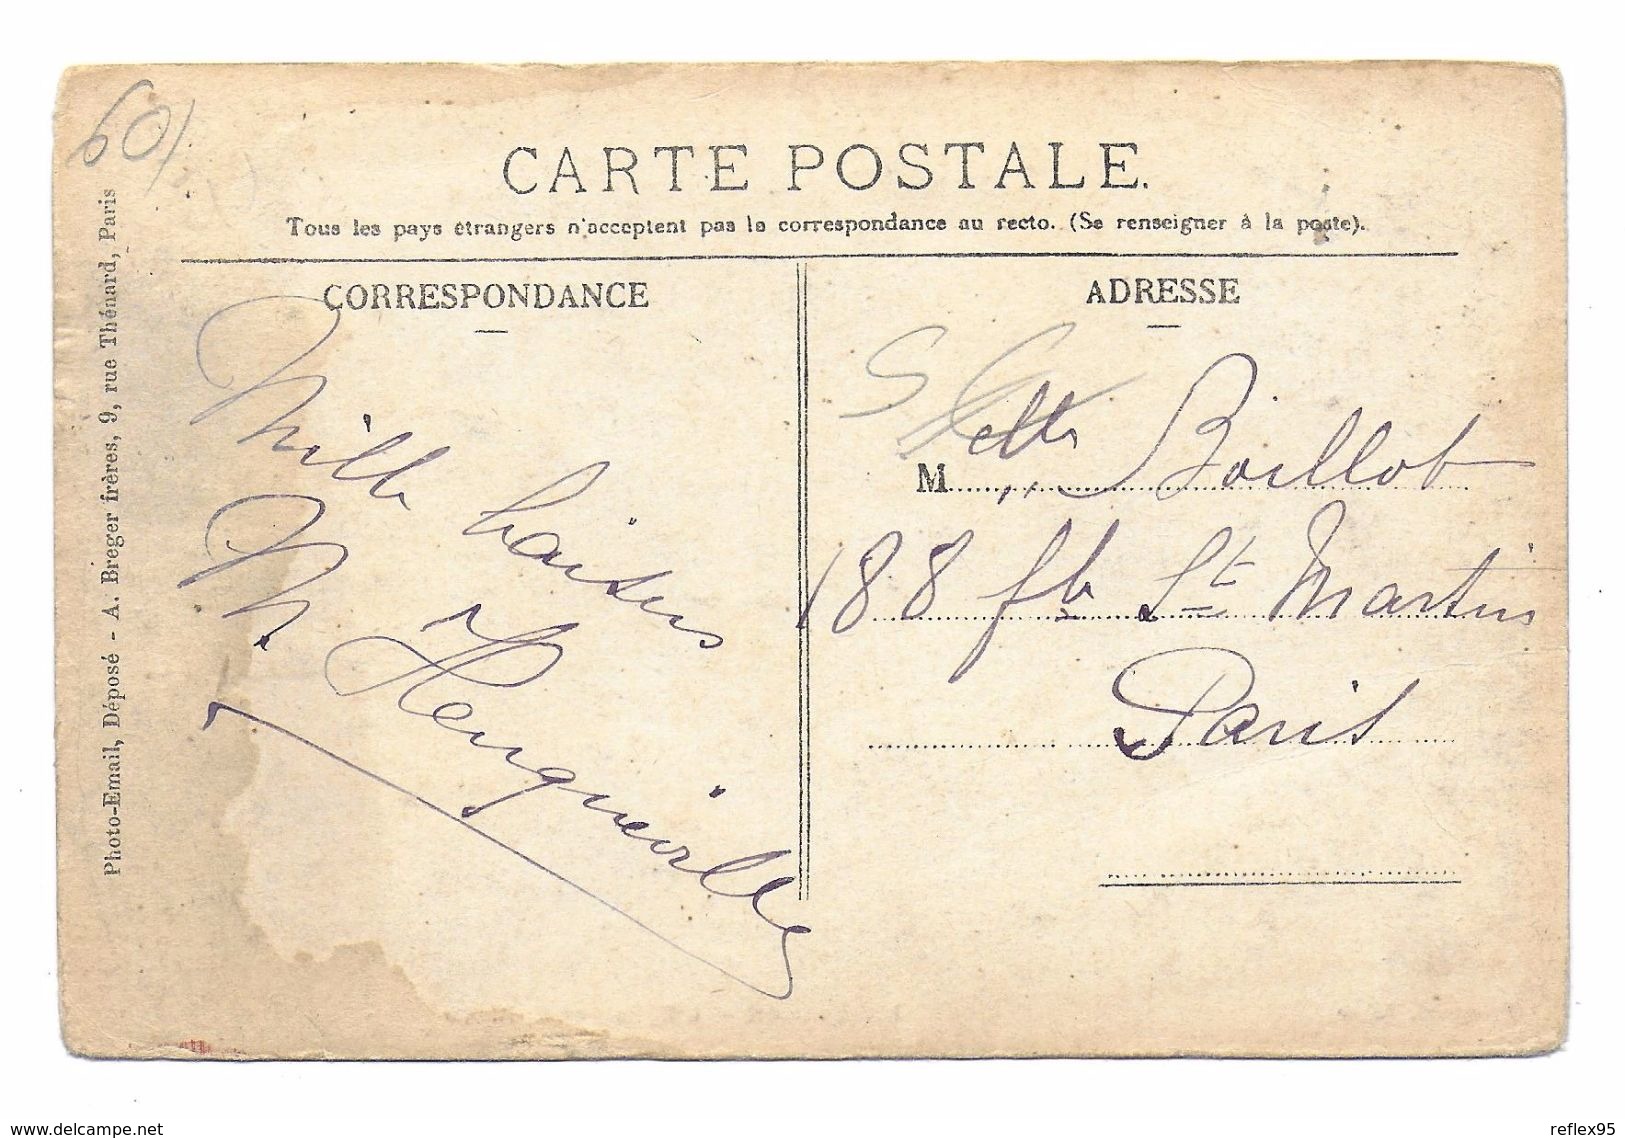 601
CARTE POSTALE.
Tous les pays étrangers n'acceptent pas la correspondance au recto. (Se renseigner à la poste).
CORRESPONDANCE
Mille baisers
M. Henqueville
ADRESSE
M elle Boillot
188 fb St Martin
Paris
Photo-Email, Déposé - A. Breger frères, 9, rue Thénard, Paris
www.delcampe.net
reflex95